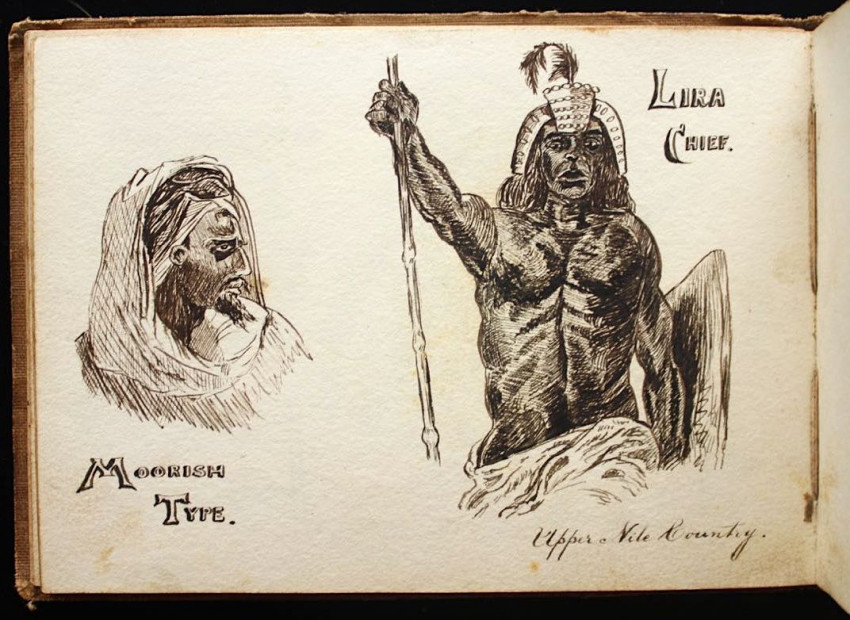 MOORISH
TYPE.
LIRA
CHIEF.
Upper Nile Country.